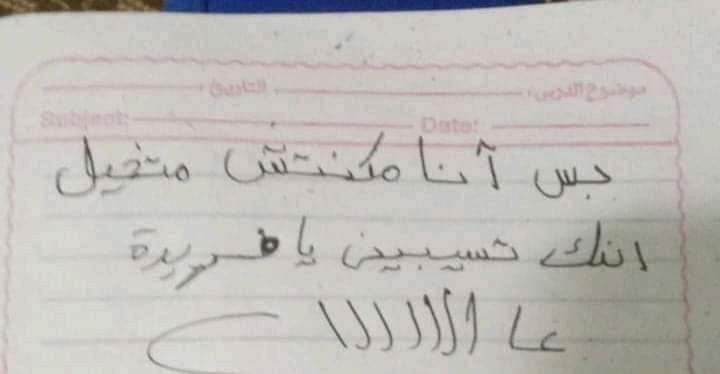 موضوع الدرس: التاريخ
Subject: Date:
بس أنا مكنتش متخيل
انك تسيبين يا فريدة